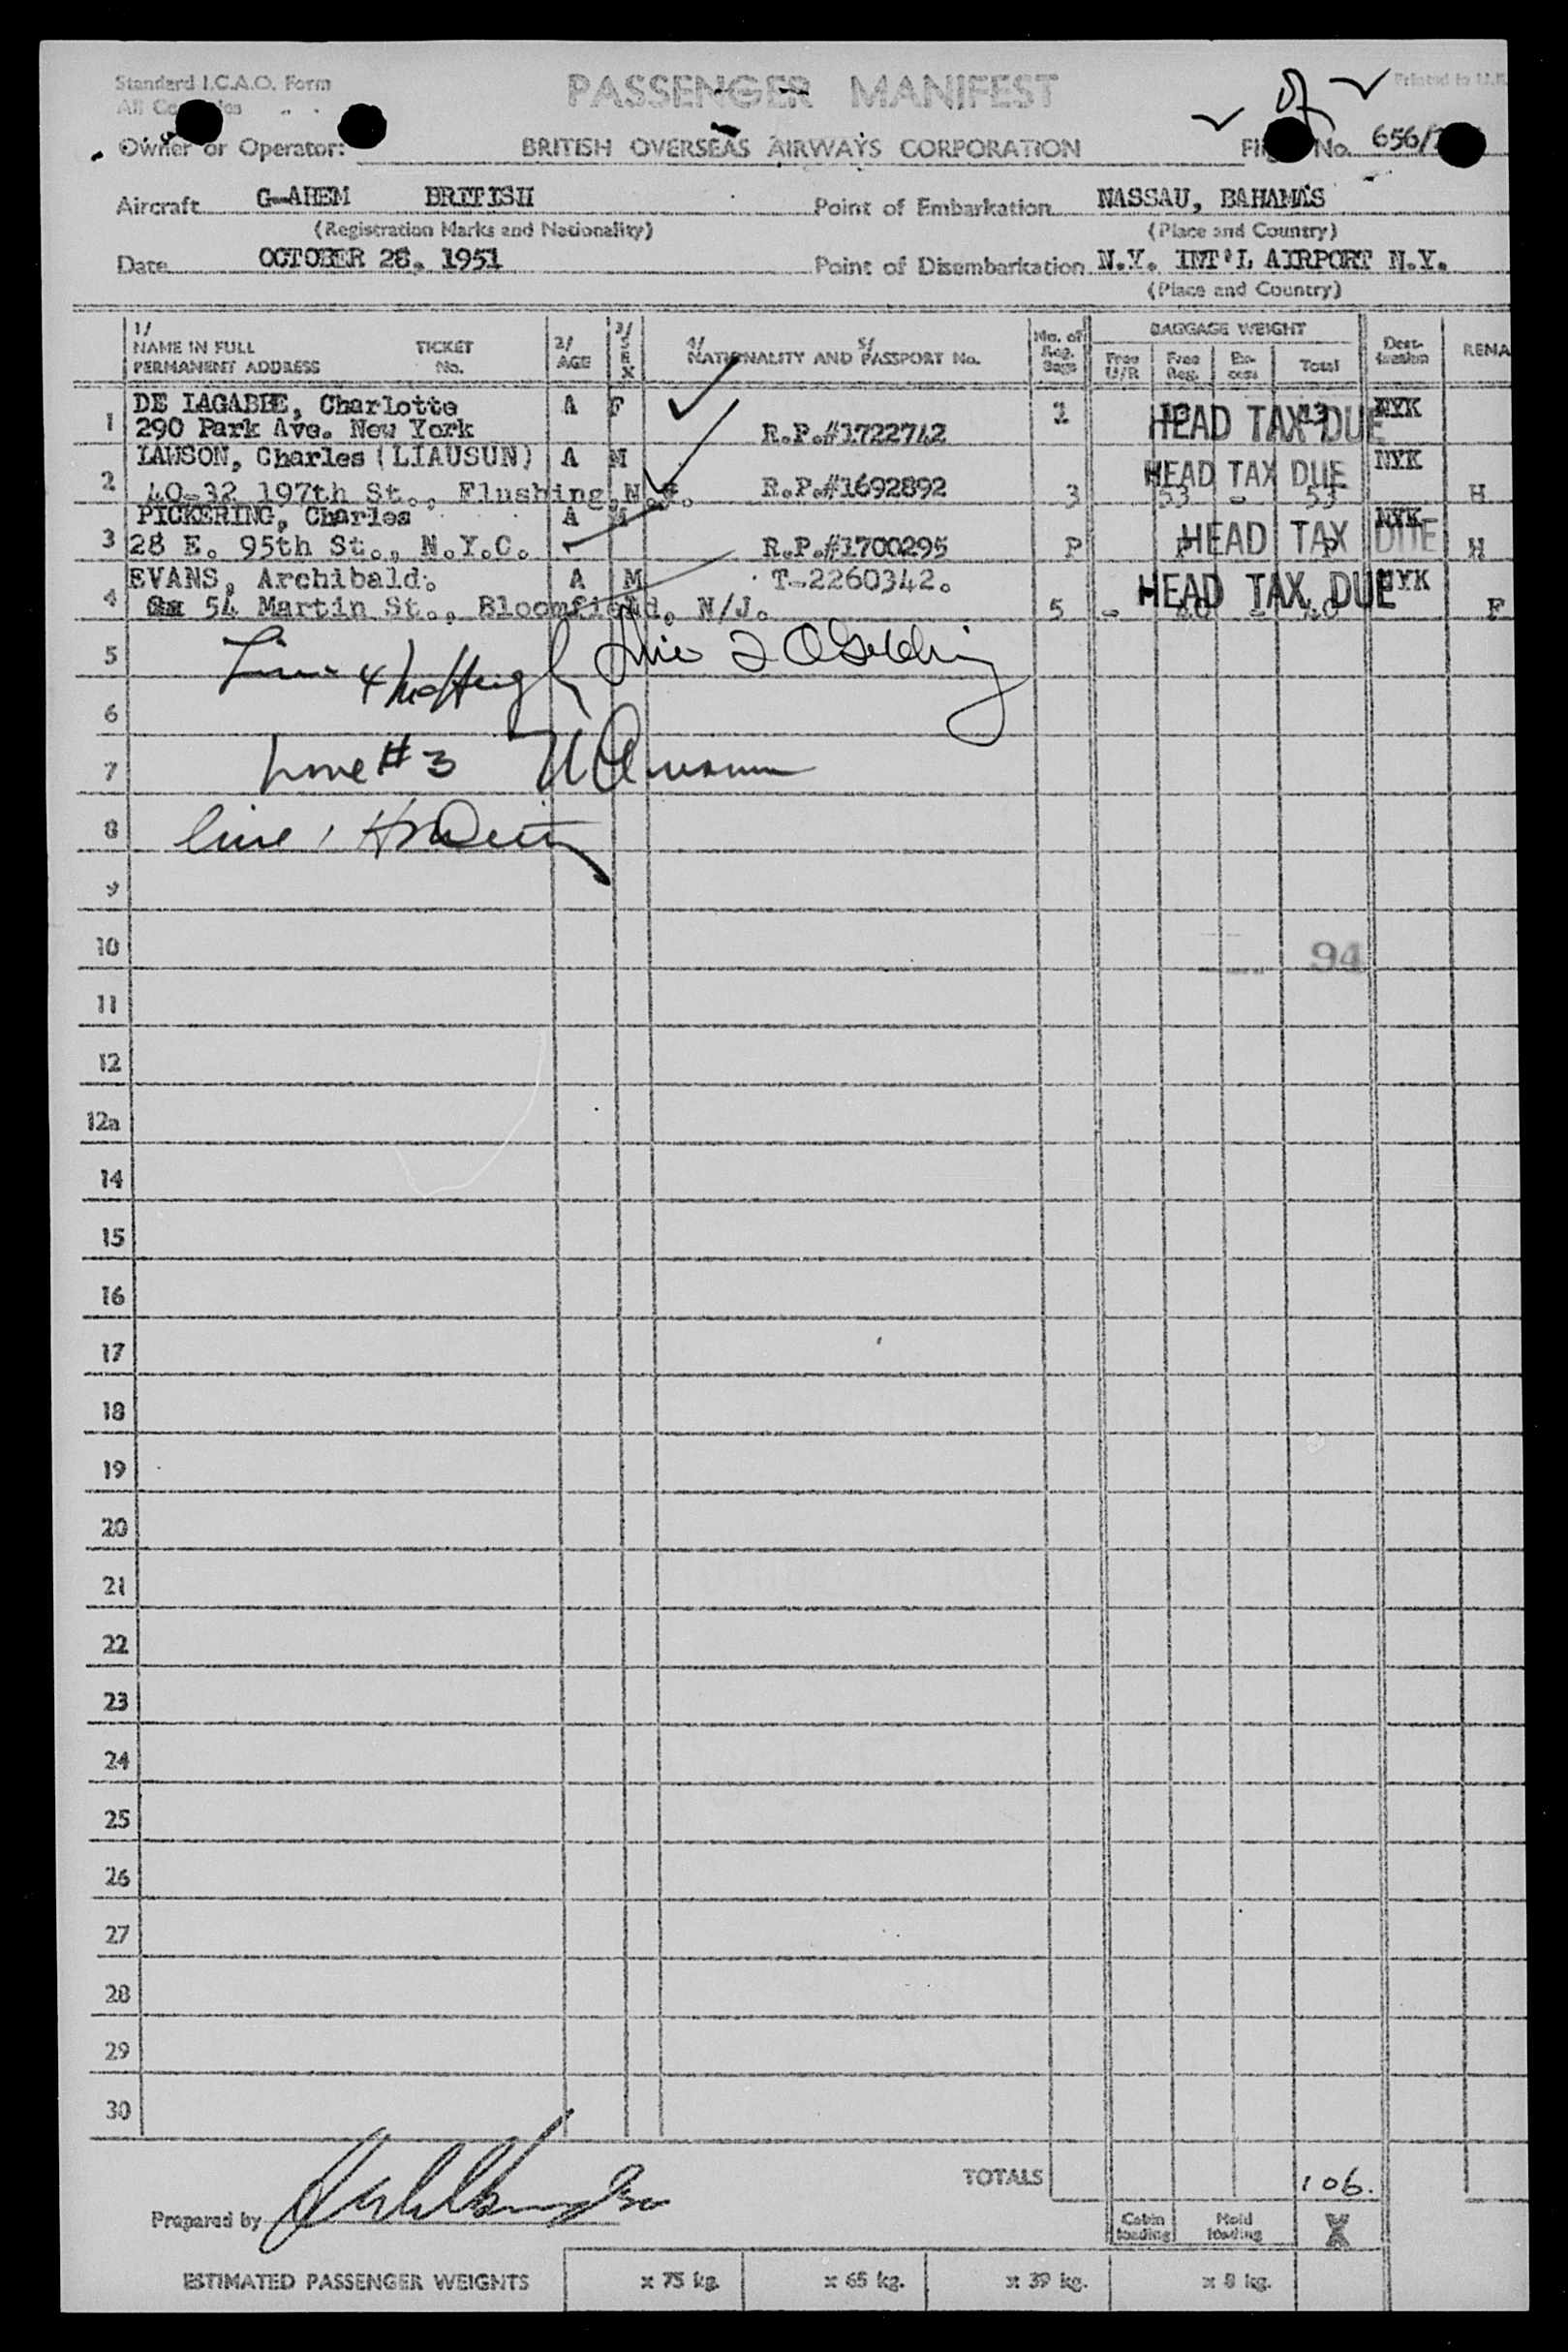 Standard I.C.A.O. Form
PASSENGER MANIFEST
All
Owner or Operator: BRITISH OVERSEAS AIRWAYS CORPORATION No. 656/
Aircraft G-AHEM BRITISH Point of Embarkation NASSAU, BAHAMAS
(Registration Marks and Nationality) (Place and Country)
Date OCTOBER 28, 1951 Point of Disembarkation N.Y. INT'L AIRPORT N.Y.
(Place and Country)
1/ NAME IN FULL PERMANENT ADDRESS TICKET No. 2/ AGE 3/ SEX 4/ 5/ NATIONALITY AND PASSPORT No. No. of Reg. Bags BAGGAGE WEIGHT Free U/R Free Reg. Ex-cess Total Dest-ination REMA
DE LAGABBE, Charlotte A F 1 NYK
1 290 Park Ave. New York R.P.#1722742 HEAD TAX DUE
LAWSON, Charles (LIAUSUN) A M HEAD TAX DUE NYK
2 40-32 197th St., Flushing,N.Y. R.P.#1692892 3 53 - 53 H
PICKERING, Charles A M NYK
3 28 E. 95th St., N.Y.C. R.P.#1700295 P P HEAD TAX DUE P H
EVANS, Archibald. A M T-2260342. HEAD TAX DUE NYK
4 54 Martin St., Bloomfield, N/J. 5 - 40 - 40 F
5
6
7 Line # 3
8 line 1
9
10 94
11
12
12a
14
15
16
17
18
19
20
21
22
23
24
25
26
27
28
29
30
TOTALS 106.
Prepared by
Cabin loading Hold loading X
ESTIMATED PASSENGER WEIGHTS x 75 kg. x 65 kg. x 39 kg. x 8 kg.